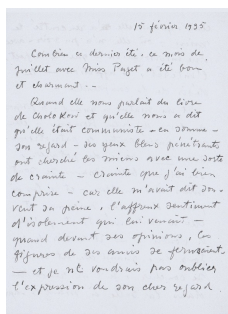 15 février 1935
Combien ce dernier été, ce mois de
juillet avec Miss Paget a été bon
et charmant..
Quand elle nous parlait du livre
de et qu'elle nous a dit
qu'elle était communiste - en somme -
son regard - ses yeux bleus pénétrants
ont cherché les miens avec une sorte
de crainte - crainte que j'ai bien
comprise - car elle m'avait dit sou-
vent sa peine, l'affreux sentiment
d'isolement qui lui venait -
quand devant ses opinions, les
figures de ses amis se fermaient,
- et je ne voudrais pas oublier
l'expression de son cher regard